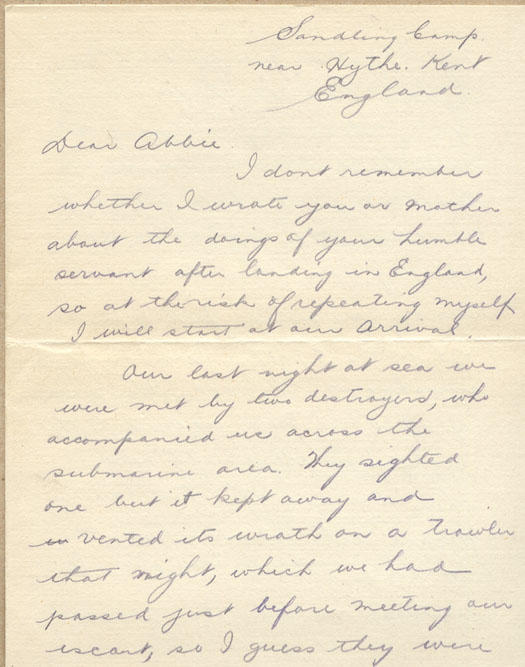 Sandling Camp.
near Hythe. Kent
England.
Dear Abbie.
I dont remember
whether I wrote you or Mother
about the doings of your humble
servant after landing in England,
so at the risk of repeating myself
I will start at our Arrival.
Our last night at sea we
were met by two destroyers, who
accompanied us across the
submarine area. They sighted
one but it kept away and
vented its wrath on a trawler
that night, which we had
passed just before meeting our
escort, so I guess they were